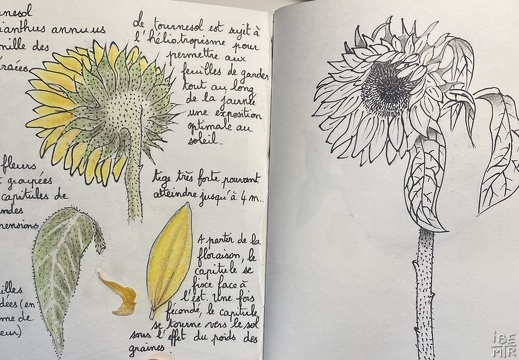 rnesol
anthus annuus
mille des
racées
de tournesol est sujet à
l'héliotropisme pour
permettre aux
feuilles de garder
tout au long
de la journée
une exposition
optimale au
soleil.
fleurs
groupées
capitules de
ndes
mensions
tige très forte pouvant
atteindre jusqu'à 4 m...
A partir de la
floraison, le
capitule se
fixe face à
l'est. Une fois
fécondé, le capitule
se tourne vers le sol
sous l'effet du poids des
graines
illes
dées (en
me de
eur)
iBE
MIR